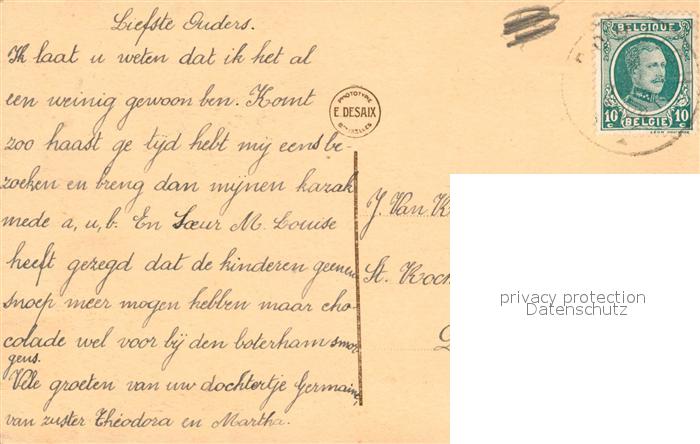 Liefste Ouders.
Ik laat u weten dat ik het al
een weinig gewoon ben. Komt
zoo haast ge tijd hebt mij eens be-
zoeken en breng dan mijnen kazak
mede a, u, b. En Sœur M. Louise
heeft gezegd dat de kinderen geenen
snoep meer mogen hebben maar cho-
colade wel voor bij den boterham smor
gens.
Vele groeten van uw dochtertje Germaine,
van zuster Théodora en Martha.
PHOTOTYPIE
E. DESAIX
BRUXELLES
BELGIQUE
10c 10c
BELGIË
J. Van
St.
privacy protection
Datenschutz